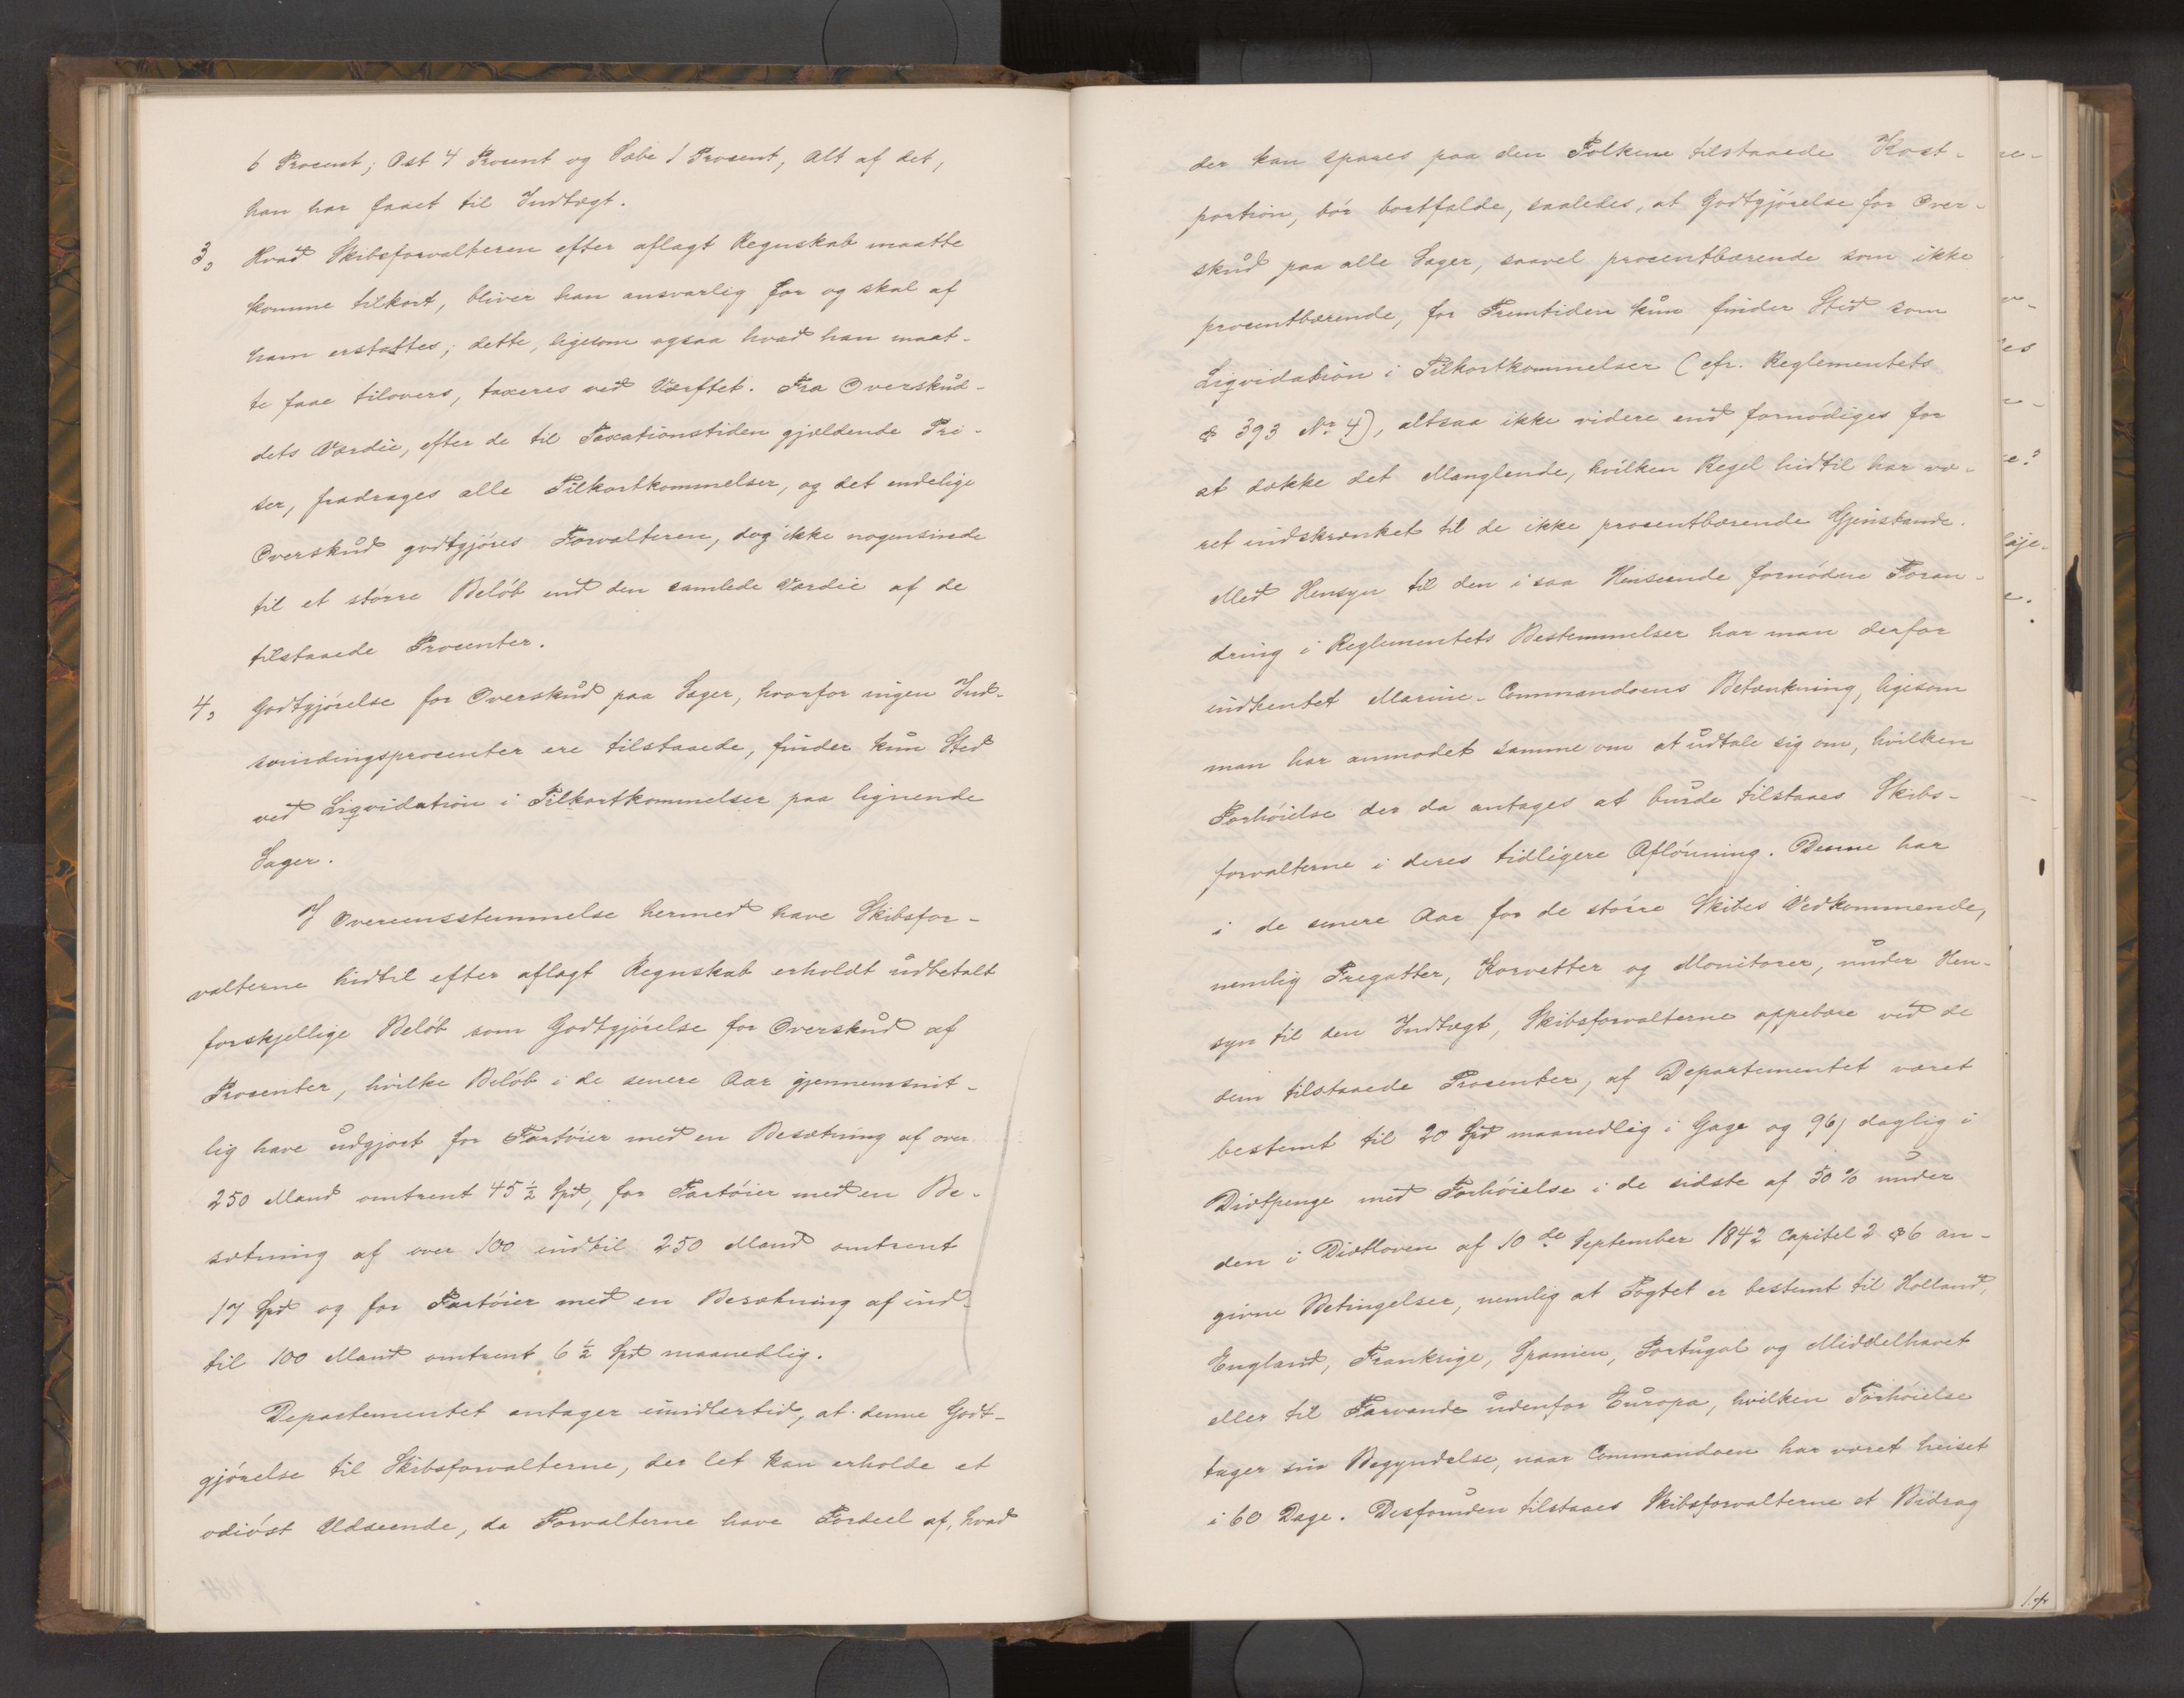 6 Procent; Ost 4 Procent og Sæbe 1 Procent, Alt af det,
han har faaet til Indtægt.
3, Hvad Skibsforvalteren efter aflagt Regnskab maatte
komme tilkort, bliver han ansvarlig for og skal af
ham erstattes; dette, ligesom ogsaa hvad han maat-
te faae tilovers, taxeres ved Værftet. Fra Overskud-
dets Værdie, efter de til Taxationstiden gjældende Pri-
ser, fradrages alle Tilkortkommelser, og det endelige
Overskud godtgjøres Forvalteren, dog ikke nogensinde
til et større Beløb end den samlede Værdie af de
tilstaaede Procenter.
4, Godtgjørelse for Overskud paa Sager, hvorfor ingen Ind-
svindingsprocenter ere tilstaaede, finder kun Sted
ved Ligvidation i Tilkortkommelser paa lignende
Sager.
I Overeensstemmelse hermed have Skibsfor-
valterne hidtil efter aflagt Regnskab erholdt udbetalt
forskjellige Beløb som Godtgjørelse for Overskud af
Procenter, hvilke Beløb i de senere Aar gjennemsnit-
lig have udgjort for Fartøier med en Besætning af over
250 Mand omtrent 45 ½ Spd, for Fartøier med en Be-
sætning af over 100 indtil 250 Mand omtrent
17 Spd og for Fartøier med en Besætning af ind-
til 100 Mand omtrent 6 ½ Spd maanedlig.
Departementet antager imidlertid, at denne Godt-
gjørelse til Skibsforvalterne, der let kan erholde et
odiøst Udseende, da Forvalterne have Fordeel af, hvad
der kan spares paa den Folkene tilstaaede Kost-
portion, bør bortfalde, saaledes, at Godtgjørelse for Over-
skud paa alle Sager, saavel procentbærende som ikke
procentbærende, for Fremtiden kun finder Sted som
Ligvidation i Tilkortkommelser (cfr. Reglementets
§ 393 No 4), altsaa ikke videre end fornødiges for
at dække det Manglende, hvilken Regel hidtil har væ-
ret indskrænket til de ikke procentbærende Gjenstande.
Med Hensyn til den i saa Henseende fornødne Foran-
dring i Reglementets Bestemmelser har man derfor
indhentet Marine-Commandoens Betænkning, ligesom
man har anmodet samme om at udtale sig om, hvilken
Forhøielse der da antages at burde tilstaaes Skibs-
forvalterne i deres tidligere Aflønning. Denne har
i de senere Aar for de større Skibes Vedkommende,
nemlig Fregatter, Korvetter og Monitorer, under Hen-
syn til den Indtægt, Skibsforvalterne oppebære ved de
dem tilstaaede Procenter, af Departementet været
bestemt til 20 Spd maanedlig i Gage og 96/ daglig i
Diætpenge med Forhøielse i de sidste af 50 % under
den i Diætloven af 10de September 1842 Capitel 2 § 6 an-
givne Betingelser, nemlig at Togtet er bestemt til Holland,
England, Frankrige, Spanien, Portugal og Middelhavet
eller til Farvande udenfor Europa, hvilken Forhøielse
tager sin Begyndelse, naar Commandoen har været heiset
i 60 Dage. Desforuden tilstaaes Skibsforvalterne et Bidrag